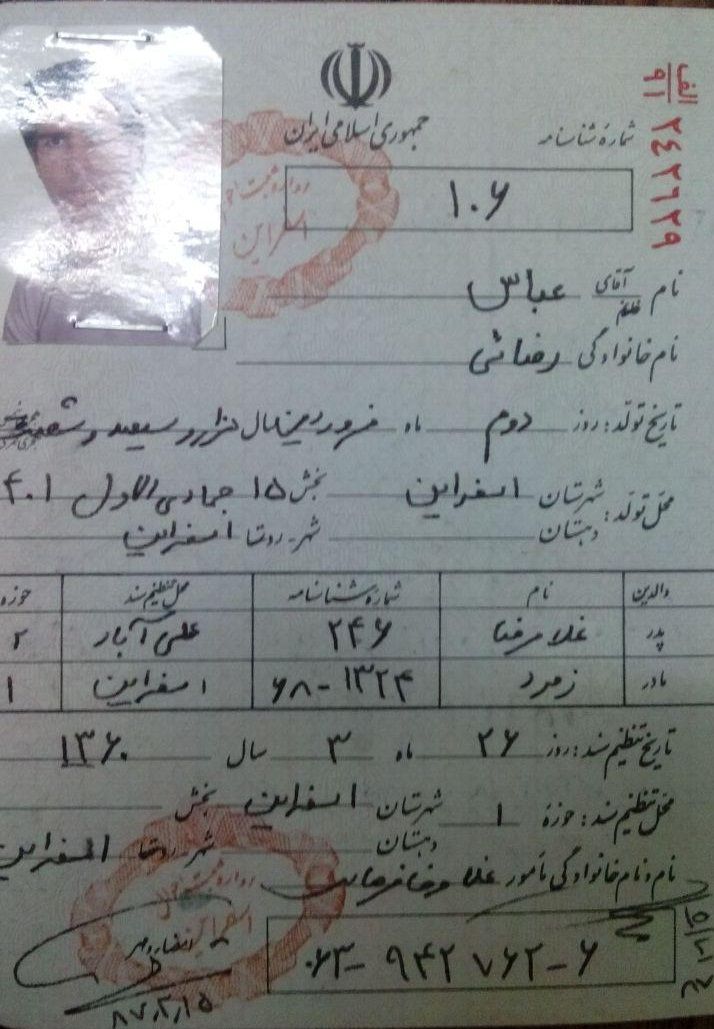 الف
۹۱
۲۴۲۶۲۹
جمهوری اسلامی ایران
شماره شناسنامه
۱۰۶
نام آقای خانم عباس
نام خانوادگی رضائی
تاریخ تولد: روز دوم ماه فروردین سال هزار و سیصد و شصت
محل تولد: شهرستان اسفراین بخش ۱۵ جمادی الاول ۴۰۱
دهستان شهر-روستا اسفراین
والدین نام شماره شناسنامه محل تنظیم سند حوزه
پدر غلامرضا ۲۴۶ علی آباد ۲
مادر زمرد ۶۸-۱۳۲۴ اسفراین ۱
تاریخ تنظیم سند: روز ۲۶ ماه ۳ سال ۱۳۶۰
محل تنظیم سند: حوزه ۱ شهرستان اسفراین بخش
دهستان شهر روستا اسفراین
نام و نام خانوادگی مأمور غلامرضا
امضاء و مهر
۰۶۳-۹۴۲۷۶۲-۶
۸۷,۲,۱۵